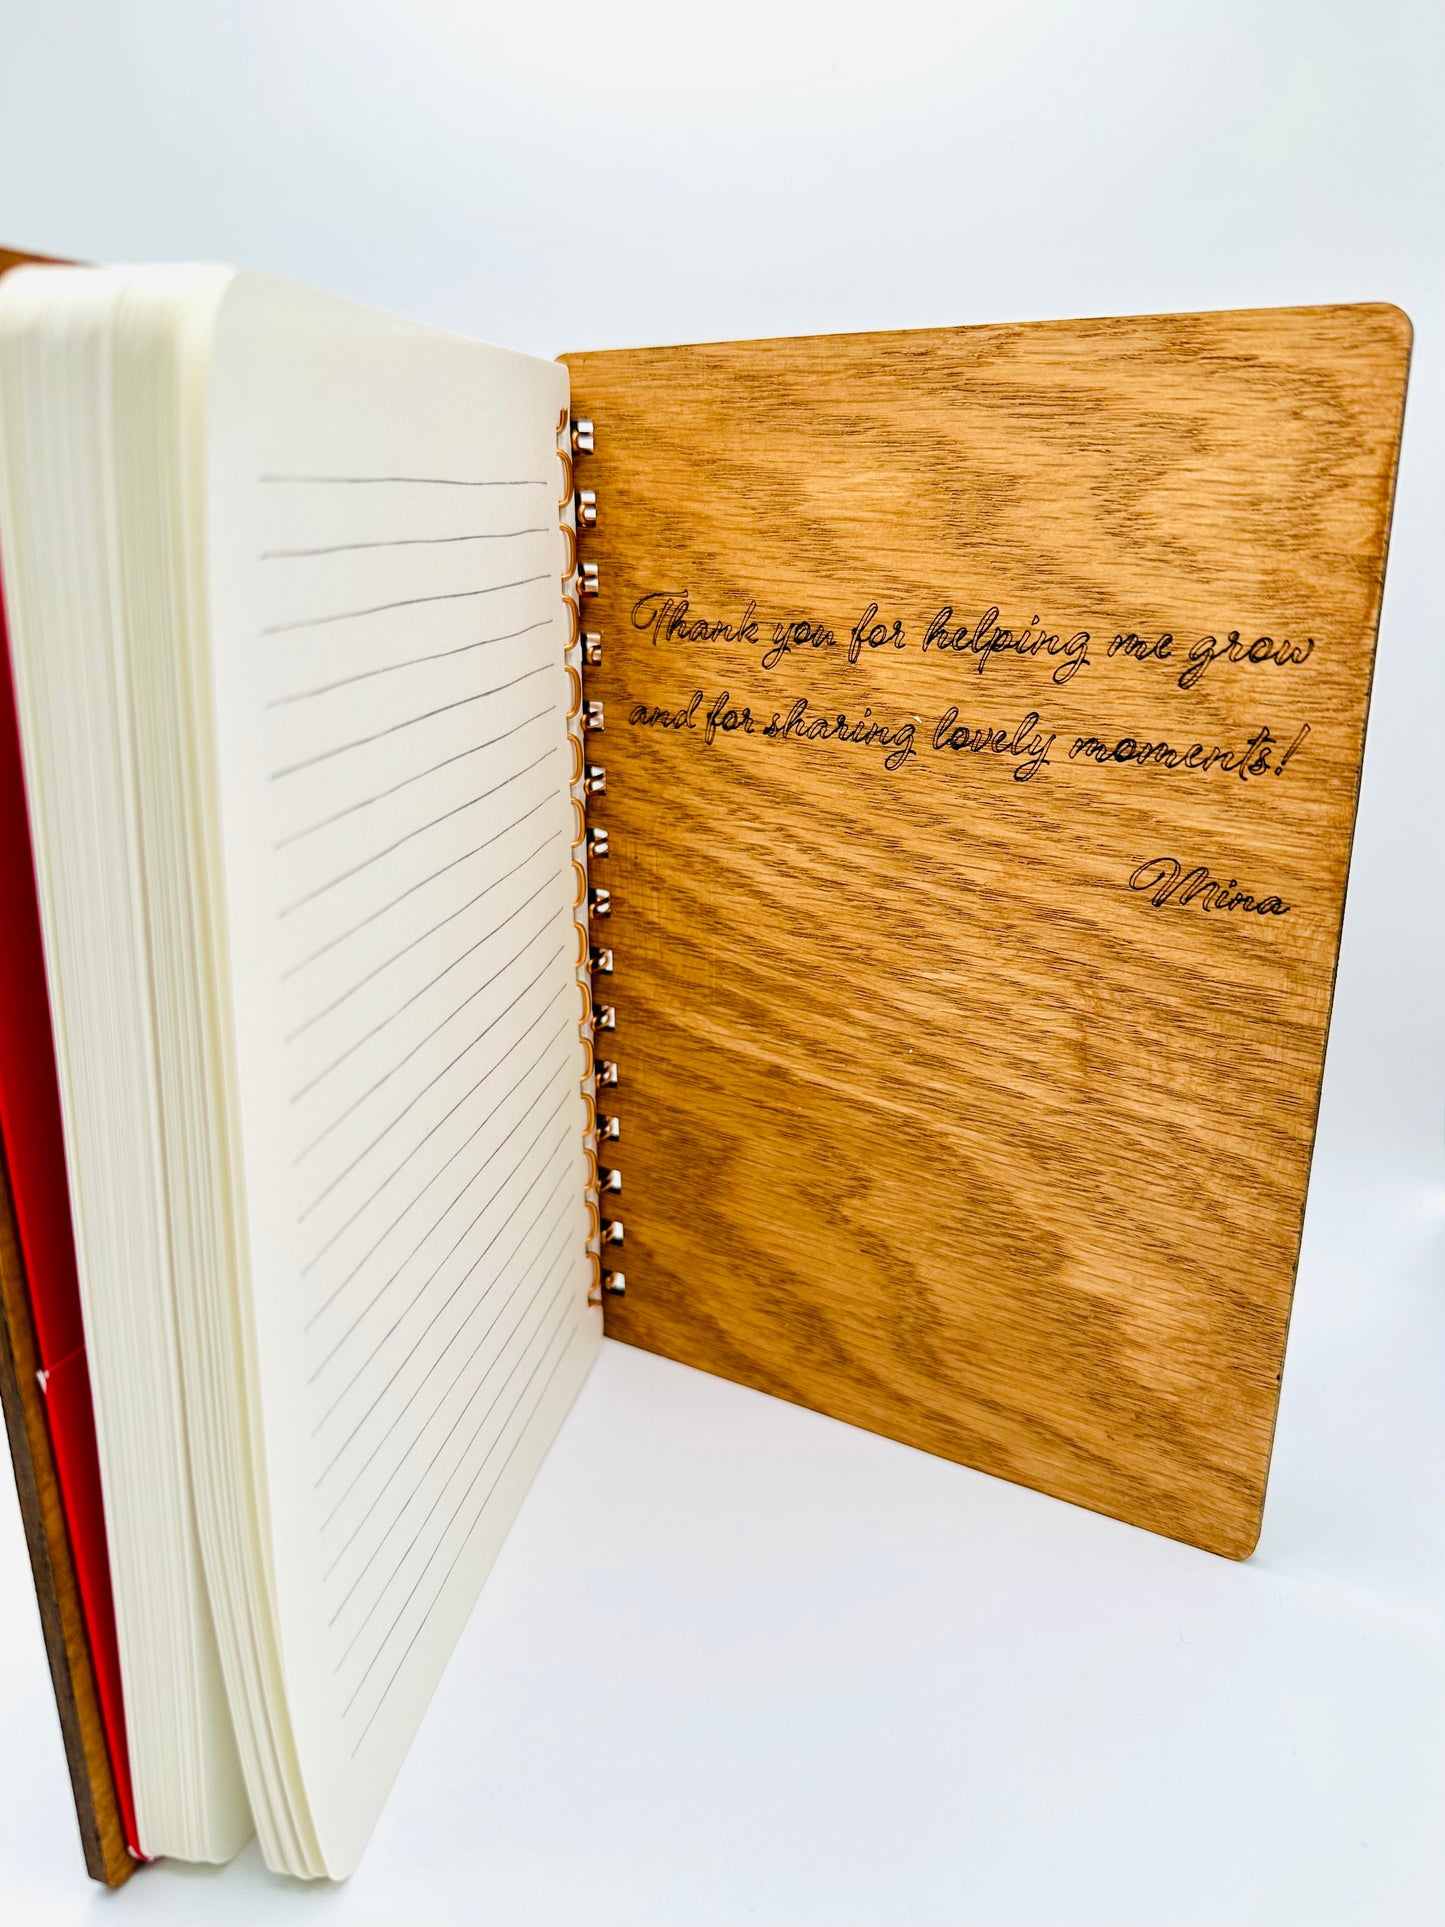 Thank you for helping me grow
and for sharing lovely moments!
Mina